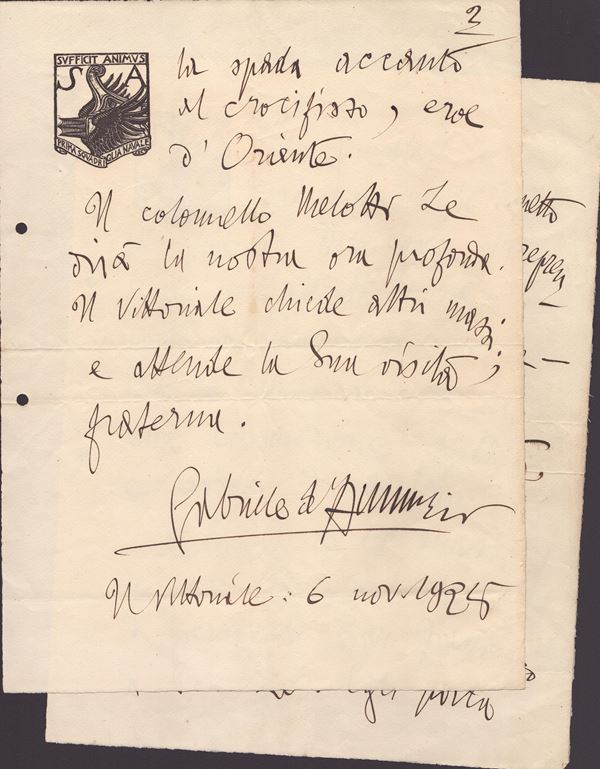 2
SVFFICIT ANIMVS
S A
PRIMA SQVADRIGLIA NAVALE
la spada accanto
al crocifisso, eroe
d'Oriente.
Il colonnello Melotti Le
dirà la nostra ora profonda.
Il Vittoriale chiede altri massi;
e attende la Sua visita
fraterna.
Gabriele d'Annunzio
Il Vittoriale: 6 nov. 1925